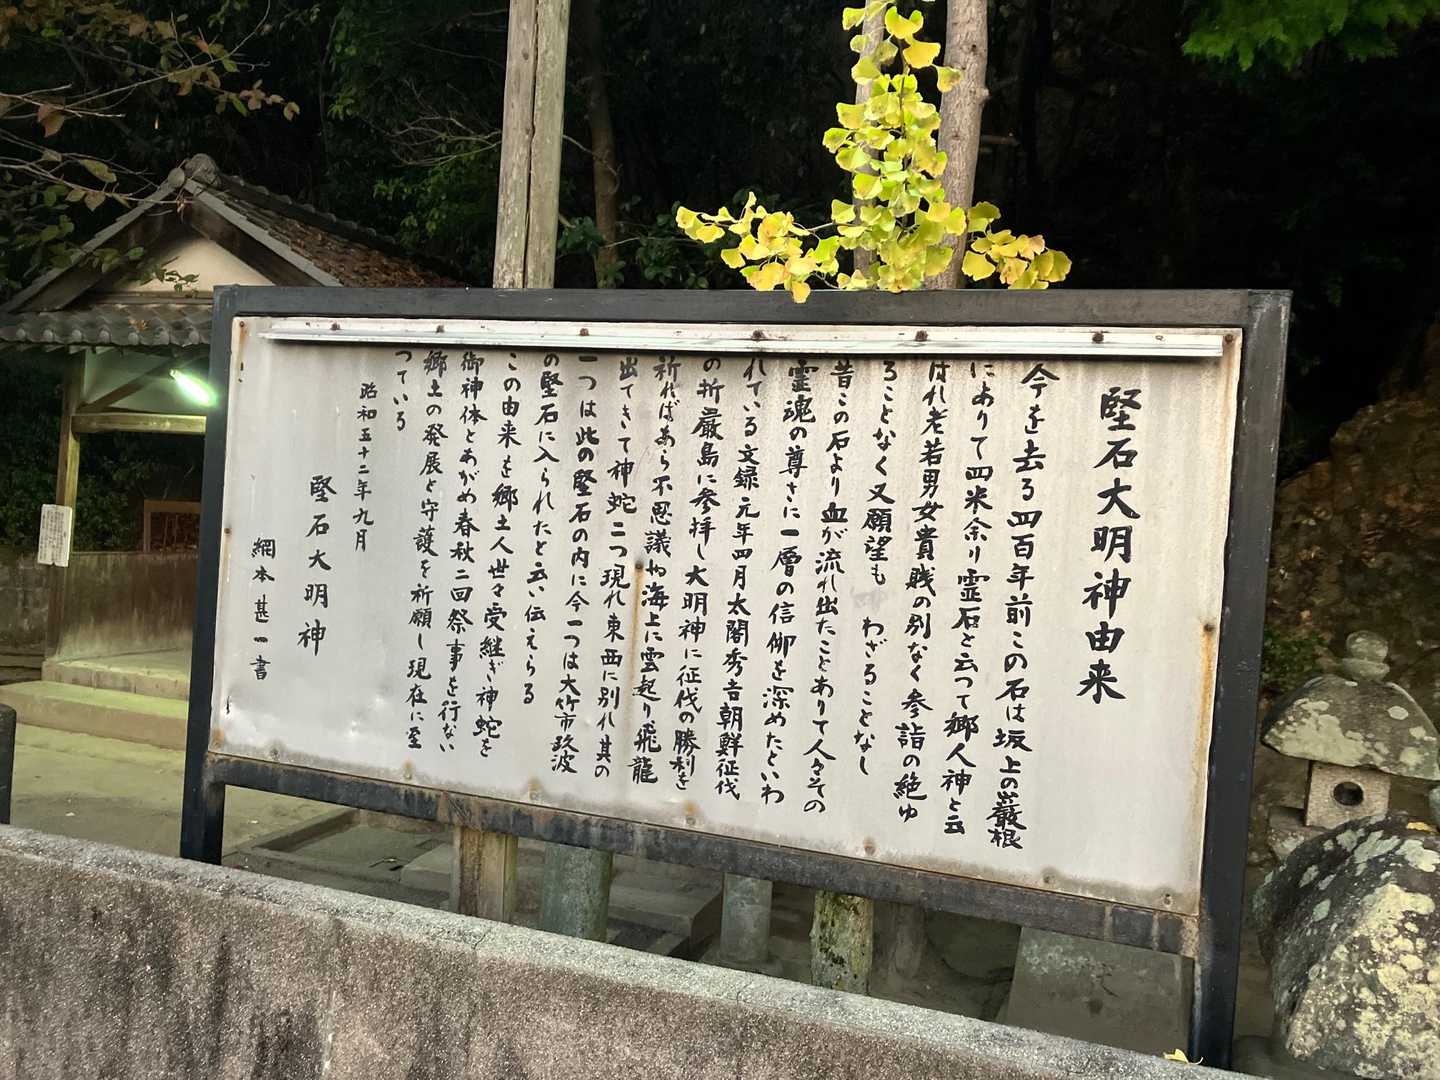 堅石大明神由来
今を去る四百年前この石は坂上の巌根
にありて四米余り霊石と云つて郷人神と云
はれ老若男女貴賎の別なく参詣の絶ゆ
ることなく又願望も わざることなし
昔この石より血が流れ出たことありて人々その
霊魂の尊さに一層の信仰を深めたといわ
れている文録元年四月太閤秀吉朝鮮征伐
の折巌島に参拝し大明神に征伐の勝利を
祈ればあら不思議や海上に雲起り飛龍
出てきて神蛇二つ現れ東西に別れ其の
一つは此の堅石の内に今一つは大竹市玖波
の堅石に入られたと云い伝えらる
この由来を郷土人世々受継ぎ神蛇を
御神体とあがめ春秋二回祭事を行ない
郷土の発展と守護を祈願し現在に至
つている
昭和五十二年九月
堅石大明神
網本甚一書